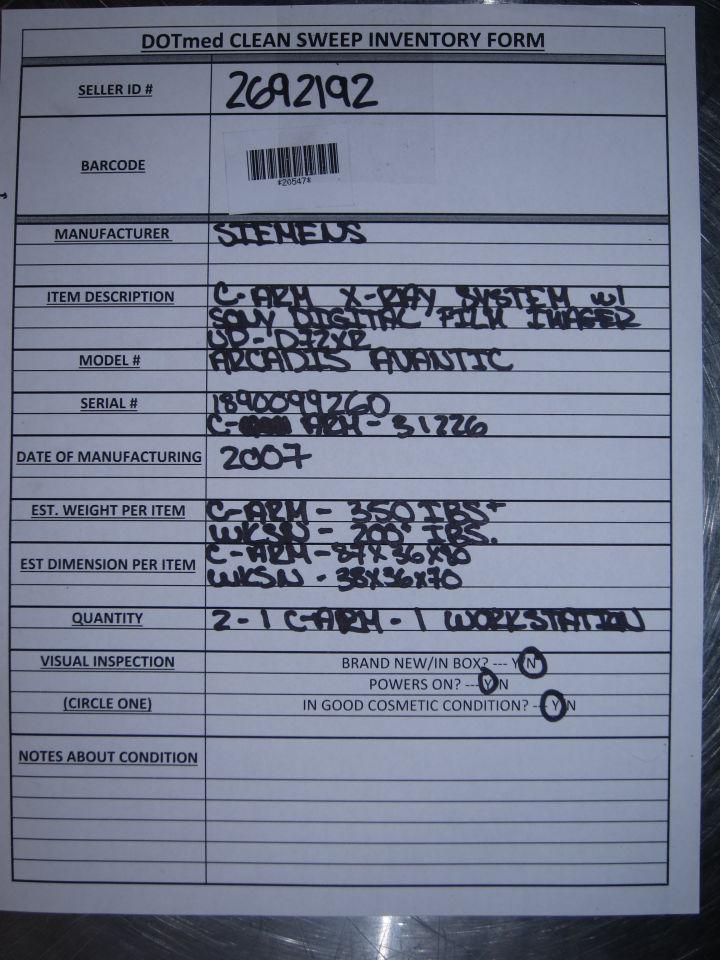 DOTmed CLEAN SWEEP INVENTORY FORM
SELLER ID # 2692192
BARCODE
*20547*
MANUFACTURER SIEMENS
ITEM DESCRIPTION C-ARM X-RAY SYSTEM w/
SONY DIGITAL FILM IMAGER
UP-D72XR
MODEL # ARCADIS AVANTIC
SERIAL # 1890099260
C- ARM - 31226
DATE OF MANUFACTURING 2007
EST. WEIGHT PER ITEM C-ARM - 350 IBS+
WKSN - 200+ IBS.
EST DIMENSION PER ITEM C-ARM - 87X36X90
WKSN - 38X36X70
QUANTITY 2 - 1 C-ARM - 1 WORKSTATION
VISUAL INSPECTION BRAND NEW/IN BOX? --- Y/N
POWERS ON? --- Y/N
(CIRCLE ONE) IN GOOD COSMETIC CONDITION? --- Y/N
NOTES ABOUT CONDITION